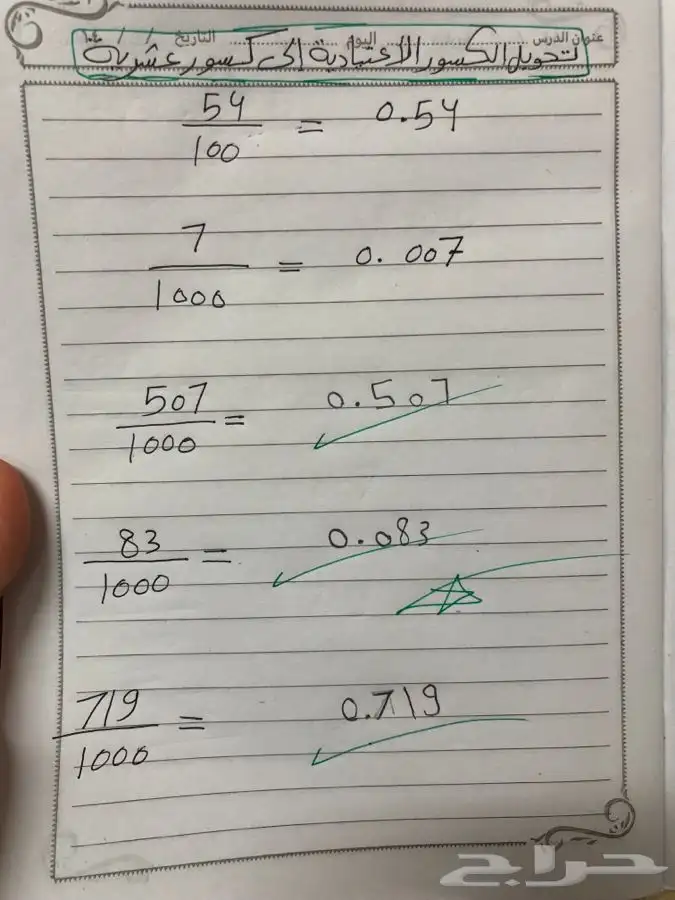 عنوان الدرس ........ اليوم ........ التاريخ / / ١٤٤
تحويل الكسور الاعتيادية إلى كسور عشرية
54/100 = 0.54
7/1000 = 0.007
507/1000 = 0.507
83/1000 = 0.083
719/1000 = 0.719
حراج